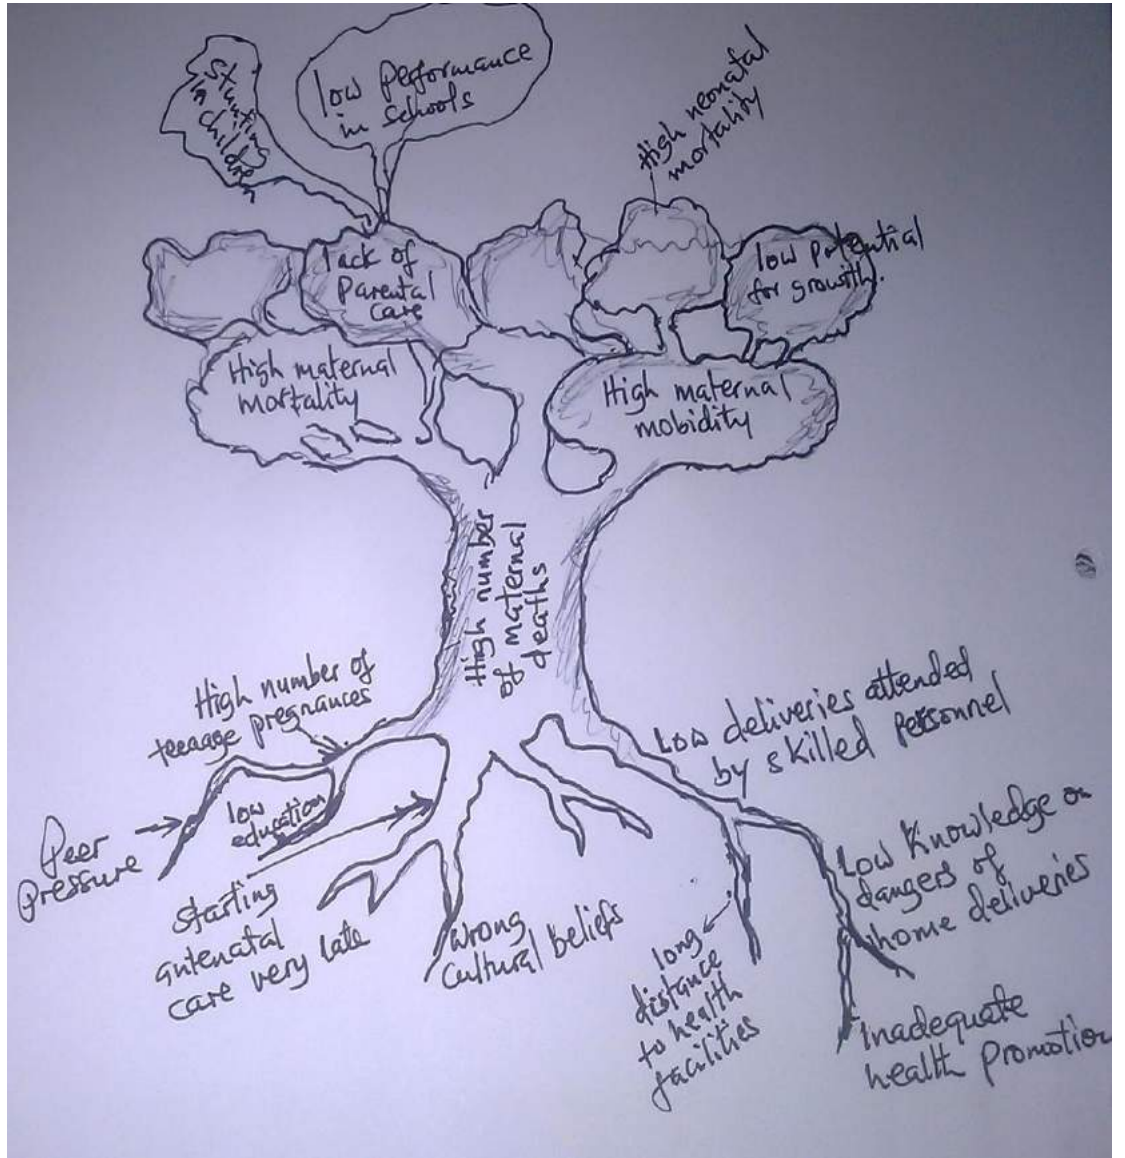 stunting
in
children
low performance
in schools
High neonatal
mortality
lack of
parental
care
low potential
for growth.
High maternal
mortality
High maternal
mobidity
High number
of maternal
deaths
High number of
teeaage pregnances
Low deliveries attended
by skilled Personnel
Peer
pressure
low
education
starting
antenatal
care very late
wrong
cultural beliefs
long
distance
to health
facilities
Low Knowledge on
dangers of
home deliveries
Inadequate
health promotion